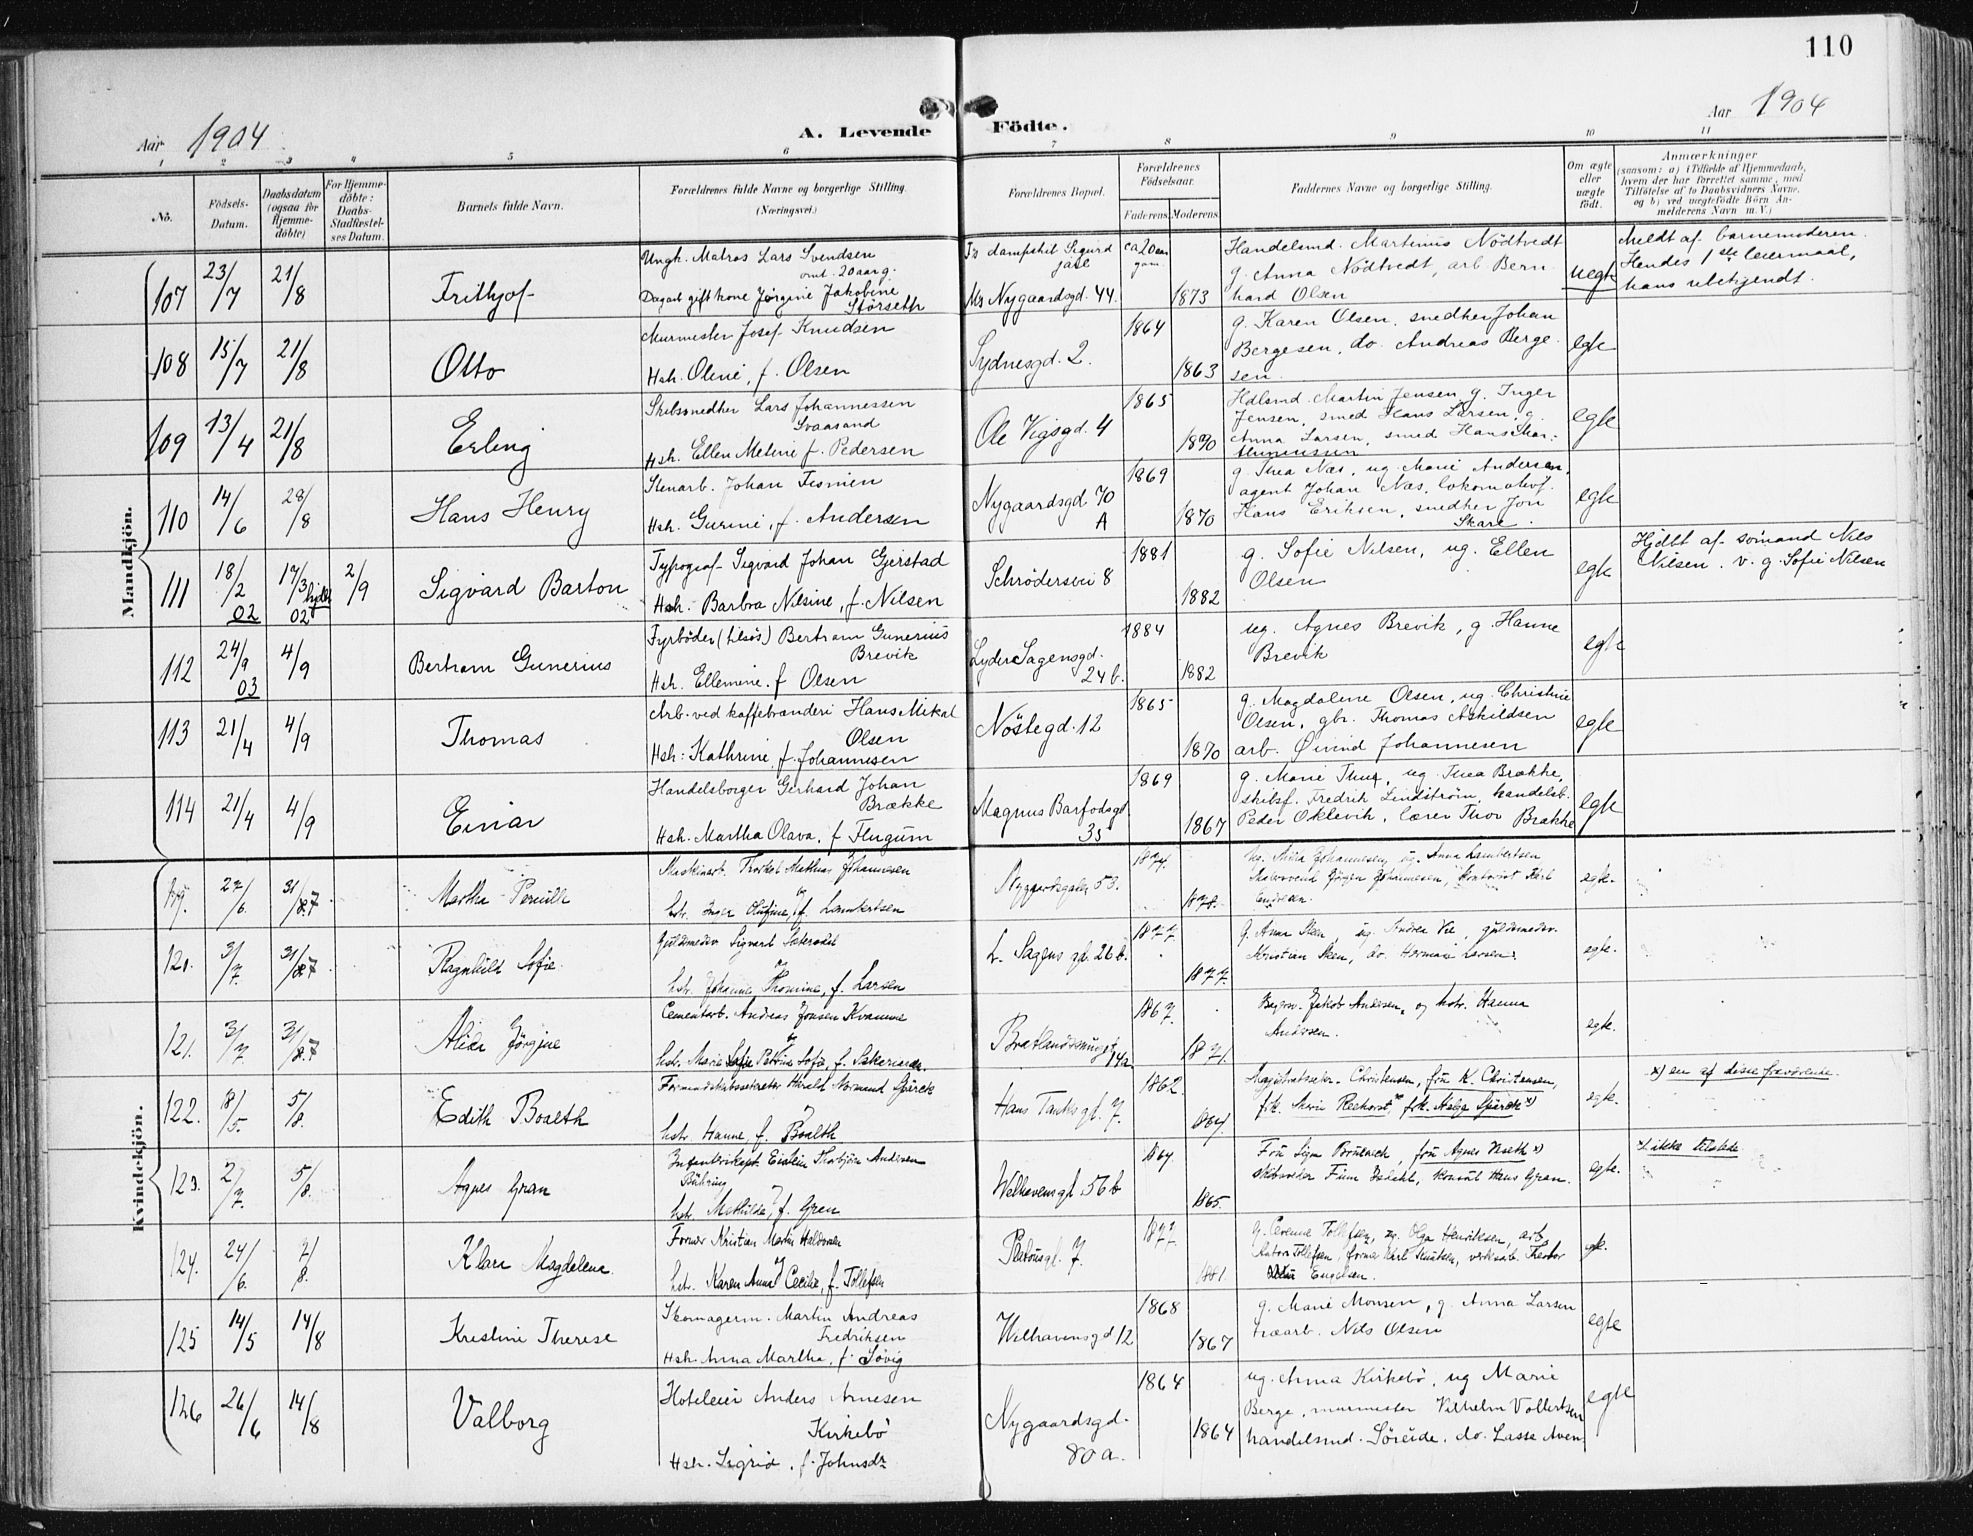 110
Aar 1904
A. Levende Födte.
Aar 1904
1 2 3 4 5 6 7 8 9 10 11
No.
Födsels-Datum.
Daabsdatum (ogsaa för Hjemme-döbte)
For Hjemme-döbte: Daabs-Stadfæstel-ses Datum.
Barnets fulde Navn.
Forældrenes fulde Navne og borgerlige Stilling.
(Næringsvei.)
Forældrenes Bopæl.
Forældrenes Födselsaar.
Faderens. Moderens.
Faddernes Navne og borgerlige Stilling.
Om ægte eller uægte födt.
Anmærkninger
(saasom: a) i Tilfælde af Hjemmedaab, hvem der har forrettet samme, med Tilföielse af to Daabsvidners Navne, og b) ved uægtefödte Börn An-melderens Navn m. V.)
Mandkjön.
107 23/7 21/8 Frithjof
Ungk. Matros Lars Svendsen
omt. 20 aar g.
Dagarb. gift kone Jørgine Jakobine
Størseth
Fr dampskib Sigurd Jarl
Mr Nygaardsgd. 44.
ca 20 aar gam. 1873
Handelsmd. Martinus Nödtvedt
g. Anna Nödtvedt, arb. Bern
hard Olsen
uegte
Meldt af barnemoderen.
Hendes 1ste leiermaal,
hans ubekjendt.
108 15/7 21/8 Otto
Murmester Josef Knudsen
Hstr. Oline, f. Olsen
Sydnesgd. 2.
1864 1863
g. Karen Olsen, snedker Johan
Bergesen, do. Andreas Berge
sen
egte
109 13/4 21/8 Erling
Skibssnedker Lars Johannessen
Svaasand
Hstr. Ellen Metine f. Pedersen
Ole Vigsgd. 4
1865 1870
Hdlsmd. Martin Jensen, g. Inger
Jensen, smed Hans Larsen, g.
Anna Larsen, smed Hans Mar-
egte
110 14/6 28/8 Hans Henry
Stenarb. Johan
Hstr. Gurine, f. Andersen
Nygaardsgd. 70
A
1869 1870
g. Thea Næs, ug. Marie Andersen,
agent Johan Næs, lokomotivf.
Hans Eriksen, snedker Jon
Skare.
egte
111 18/2 02 17/3 hjdbt 02 2/9 Sigvard Barton
Typograf Sigvard Johan Gjerstad
Hstr. Barbra Nilsine, f. Nilsen
Schrödersvei 8
1881 1882
g. Sofie Nilsen, ug. Ellen
Olsen
egte
Hjdbt af sömand Nils
Nilsen. v. g. Sofie Nilsen
112 24/9 03 4/9 Bertram Gunerius
Fyrböder (tilsøs) Bertram Gunerius
Brevik
Hstr. Ellemine. f Olsen
Lyder Sagensgd.
24 b.
1884 1882
ug. Agnes Brevik, g. Hanne
Brevik
egte
113 21/4 4/9 Thomas
Arb. ved kaffebrænderi Hans Mikal
Olsen
Hstr: Kathrine, f. Johannesen
Nöstegd. 12
1865 1870
g. Magdalene Olsen, ug. Christine
Olsen, gbr. Thomas Askildsen
arb. Øivind Johannesen
egte
114 21/4 4/9 Einar
Handelsborger Gerhard Johan
Brække
Hstr. Martha Olava, f Flugum
Magnus Barfodsgd
35
1869 1867
g. Marie, ug. Thea Brække,
skibsf. Fredrik Lindström, handelsb.
Peder Oklevik, lærer Thor Brække
egte
Kvindekjön.
119. 27/6. 31/7 Martha Pernille
Maskinarb. Mathias Johannesen
og
hstr. Inger Olufine, f. Lambertsen
Nygaardsgaden 53.
1874. 1878.
ug. Johannesen, ug. Anna Lambertsen
Jörgen Johannesen, kontorist
egte.
120. 3/7. 31/7 Ragnhild Sofie.
Guldsmedsv. Sigvard
og
hstr. Johanne Thomine, f. Larsen
L. Sagens gd. 26 b.
1877 1877.
g. Anna Steen, ug. Andrea, guldsmedsv.
Kristian Steen, do. Larsen.
egte.
121. 3/7 31/7 Jörgine
Cementarb. Andreas Jonsen Kvamme
og
hstr. Marie Petrine Sofie, f.
14a
1867. 1871.
Jakob Andersen, og hstr. Hanna
egte.
122. 18/5. 5/8. Edith Boalth
Formandskabssekretær Harald Normand
hstr. Hanne, f. Boalth
Hans Tanks gd. 7.
1862. 1864.
Magistratssekr. Christensen, fru K. Christensen,
frk. frk. Helga x)
egte.
x) en af disse fraværende.
123. 2/7. 5/8. Agnes Gran
Infanterikapt. Eistein Thorbjörn Andersen
Bühring
hstr. Mathilde, f. Gran
Welhavensgd. 56 b
1864. 1865.
Fru Signe, fru Agnes x)
skibsreder Finn, konsul Hans Gran.
egte.
x ikke tilstede
124. 24/6. 7/8. Klara Magdelena.
Former Kristian Martin Haldorsen
og
hstr. Karen Anna Cecilie, f. Tollefsen
7.
1877 1881.
g. Tollefsen, ug. Olga Henriksen, arb.
Anton Tollefsen, former Karl Knutsen, verksarb.
Engelsen.
egte.
125 14/5 14/8 Kristine Therese
Skomagerm. Martin Andreas
Fredriksen
Hstr. Anna Martha, f. Søvig
Welhavensgd 12
1868 1867
g. Marie Monsen, g. Anna Larsen
træarb. Nils Olsen
egte
126 26/6 14/8 Valborg
Hoteleier Anders Arnesen
Kirkebö
Hstr. Sigrid. f. Johnsdr
Nygaardsgd.
80 a.
1864 1864
ug. Anna Kirkebö, ug Marie
Berge, murmester Vilhelm Vollertsen
handelsmd. Söreide, do. Lasse Aven
egte